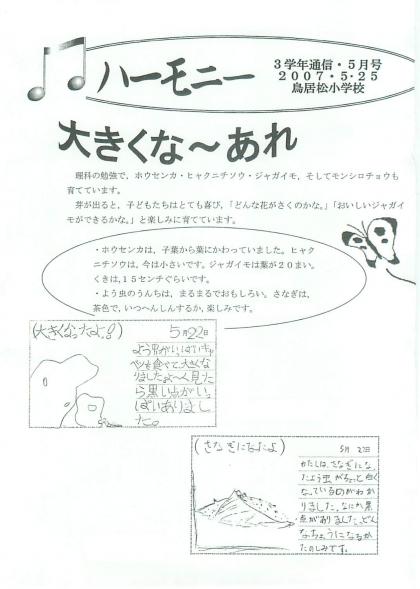 ハーモニー
3学年通信・5月号
2007・5・25
鳥居松小学校
大きくな〜あれ
理科の勉強で、ホウセンカ・ヒャクニチソウ・ジャガイモ、そしてモンシロチョウも
育てています。
芽が出ると、子どもたちはとても喜び、「どんな花がさくのかな。」「おいしいジャガイ
モができるかな。」と楽しみに育てています。
・ホウセンカは、子葉から葉にかわっていました。ヒャク
ニチソウは、今は小さいです。ジャガイモは葉が20まい。
くきは、15センチぐらいです。
・よう虫のうんちは、まるまるでおもしろい。さなぎは、
茶色で、いつへんしんするか、楽しみです。
(大きくなったよ!)
5月22日
よう虫がいっぱいキャ
ベツを食べて、大きくな
りました。よ〜く見た
ら黒い点がいっ
ぱいありまし
た。
(さなぎになたよ)
5月22日
わたしは、さなぎにな
たよう虫がちょっと白く
なっているのがわか
りました。なにか黒
点がありました。どん
なちょうになるか
たのしみです。